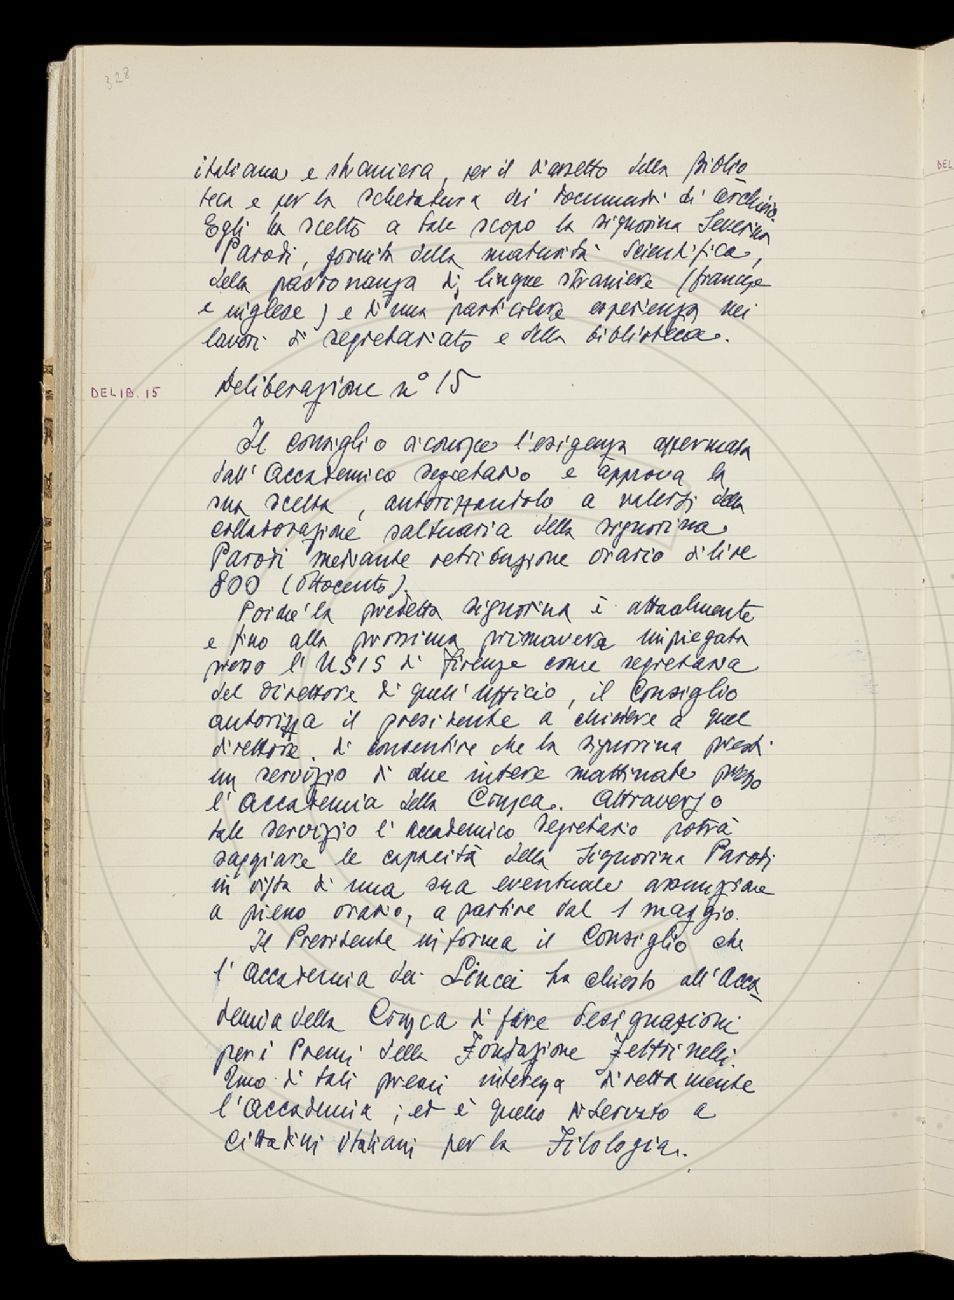 328
italiana e straniera, per il riassetto della Biblio
teca e per la schedatura dei documenti di archivio.
Egli ha scelto a tale scopo la signorina Severina
Parodi, fornita della maturità scientifica,
della padronanza di lingue straniere (francese
e inglese) e di una particolare esperienza nei
lavori di segretariato e della biblioteca.
Deliberazione n° 15
DELIB. 15
Il consiglio riconosce l'esigenza affermata
dall'Accademico segretario e approva la
sua scelta, autorizzandolo a valersi della
collaborazione saltuaria della signorina
Parodi mediante retribuzione oraria di lire
800 (ottocento).
Poiché la predetta signorina è attualmente
e fino alla prossima primavera impiegata
presso l'USIS di Firenze come segretaria
del direttore di quell'ufficio, il Consiglio
autorizza il presidente a chiedere a quel
direttore di consentire che la signorina presti
un servizio di due intere mattinate presso
l'Accademia della Crusca. Attraverso
tale servizio l'Accademico Segretario potrà
saggiare le capacità della Signorina Parodi
in vista di una sua eventuale assunzione
a pieno orario, a partire dal 1 maggio.
Il Presidente informa il Consiglio che
l'Accademia dei Lincei ha chiesto all'Acca
demia della Crusca di fare designazioni
per i Premi della Fondazione Feltrinelli.
Uno di tali premi interessa direttamente
l'Accademia; ed è quello riservato a
cittadini italiani per la Filologia.
DEL